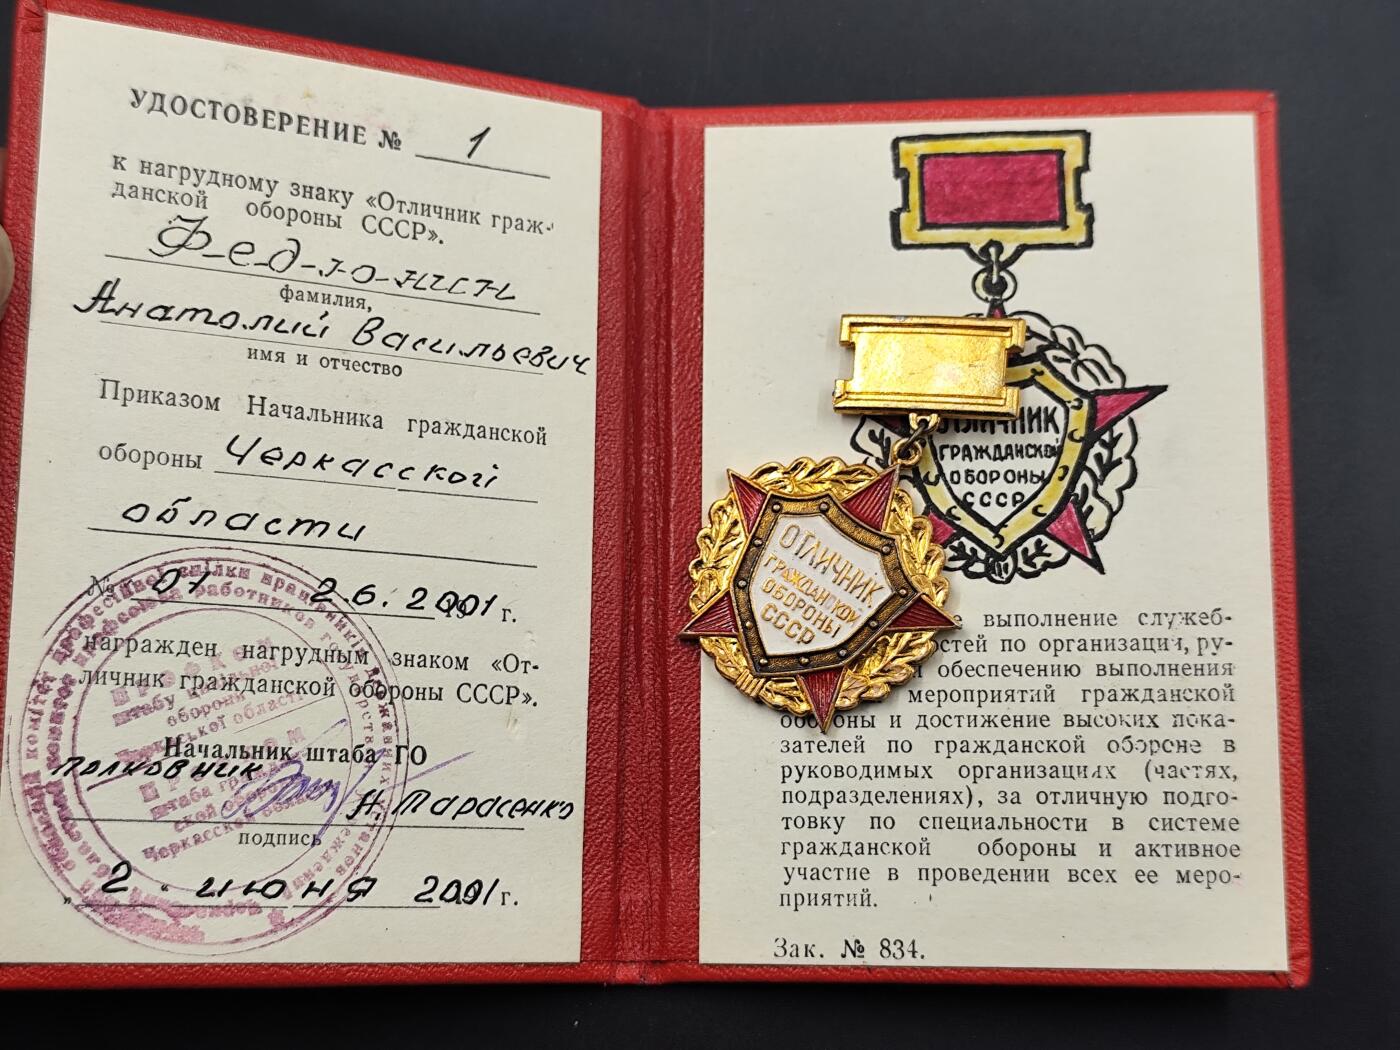 УДОСТОВЕРЕНИЕ № 1
к нагрудному знаку «Отличник граж-
данской обороны СССР».
фамилия,
Анатолий Васильевич
имя и отчество
Приказом Начальника гражданской
обороны Черкасской
области
№ 01 2.6.2001 г.
награжден нагрудным знаком «От-
личник гражданской обороны СССР».
Начальник штаба ГО
полковник Н. Тарасенко
подпись
„ 2 " июня 2001 г.
ОТЛИЧНИК
ГРАЖДАНСКОЙ
ОБОРОНЫ
СССР
ОТЛИЧНИК
ГРАЖДАНСКОЙ
ОБОРОНЫ
СССР
выполнение служеб-
по организации, ру-
обеспечению выполнения
мероприятий гражданской
обороны и достижение высоких пока-
зателей по гражданской обороне в
руководимых организациях (частях,
подразделениях), за отличную подго-
товку по специальности в системе
гражданской обороны и активное
участие в проведении всех ее меро-
приятий.
Зак. № 834.